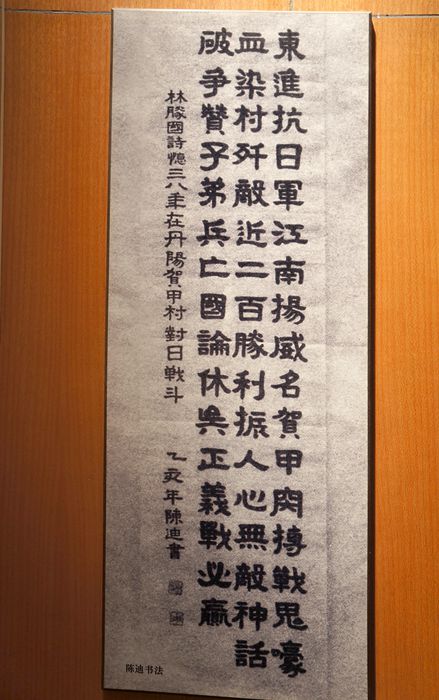 東進抗日軍江南揚威名賀甲肉搏戰鬼嚎
血染村歼敵近二百勝利振人心無敵神話
破争贊子弟兵亡國論休矣正義戰必贏
林勝國詩憶三八年在丹陽賀甲村對日戰斗
乙亥年陳迪書
陈迪书法